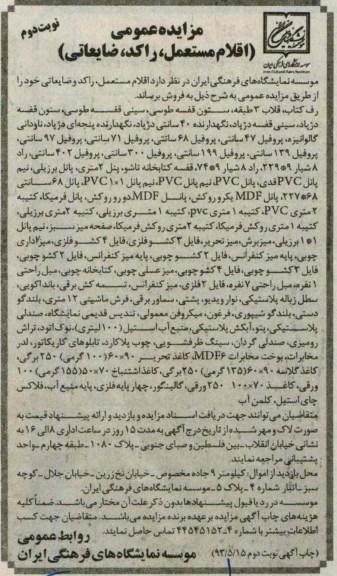 نوبت دوم
مزایده عمومی
(اقلام مستعمل، راکد، ضایعاتی)
موسسه نمایشگاه‌های فرهنگی ایران در نظر دارد اقلام مستعمل، راکد و ضایعاتی خود را
از طریق مزایده عمومی به شرح ذیل به فروش برساند.
رف کتاب، قلاب ۳ طبقه، ستون قفسه طوسی، سینی قفسه طوسی، ستون قفسه
دژپاد، سینی قفسه دژپاد، نگهدارنده ۴۰ سانتی دژپاد، نگهدارنده پنجه‌ای هژپاد، ناودانی
گالوانیزه، پروفیل ۴۷ سانتی، پروفیل ۶۸ سانتی، پروفیل ۷۱ سانتی، پروفیل ۹۷ سانتی،
پروفیل ۱۳۹ سانتی، پروفیل ۱۹۹ سانتی، پروفیل ۳۰۰ سانتی، پروفیل ۴۰۲ سانتی، راد
۸ شیار ۲۲۹*۹، راد ۸ شیار ۷۴*۹، قفسه کتابخانه تاشو، پنل ۲متری، پانل برزیلی، نیم
پانل PVC قدی، پانل PVC، نیم پانل PVC، نیم پانل ۱*۱ PVC، پانل ۶۸ سانتی
۲۲۷*۶۸، پانل MDF یک رو روکش، پانل MDF دو رو روکش، پانل فرمیکا، کتیبه
۲متری PVC، کتیبه ۱ متری pvc، کتیبه ۱ متری برزیلی، کتیبه ۲متری برزیلی،
کتیبه ۱ متری روکش فرمیکا، کتیبه ۲متری روکش فرمیکا، صفحه میز سبز، نیم پانل
۱*۱ برزیلی، میز برش، میز تحریر، فایل ۳ کشو فلزی، فایل ۴ کشو فلزی، میز اداری
چوبی، پایه میز کنفرانس، فایل ۲ کشو چوبی، پایه میز کنفرانس، فایل ۲ کشو چوبی،
فایل ۳ کشو چوبی، فایل ۴ کشو چوبی، میز عسلی چوبی، کتابخانه چوبی، مبل راحتی
۱ نفره، مبل راحتی ۷ نفره، فایل ۲ فلزی، میز کنفرانس، تسمه کش برقی، باند اکویی،
سطل زباله پلاستیکی، نوار ویدیو، پشتی، سماور برقی، فرش ماشینی ۱۲ متری، بلندگو
دستی، بلندگو شیپوری، فرغون، میکروفن معمولی، تندیس قدیمی نمایشگاه، صندلی
پلاستیکی، پتو، آبکش پلاستیکی، منبع آب استیل (۱۰۰ لیتری)، نوک اتود، تراش
رومیزی، صندلی گردان، سینک ظرفشویی، چوب پلاکارد، تابلوهای کاریکاتور، لدر
مخابرات، یوخت مخابرات MDF۶، کاغذ تحریر ۹۰*۶۰ (۱۰۰ گرمی) ۲۵۰ برگی،
کاغذ گلاسه ۹۰*۶۰ (۱۳۵ گرمی) ۲۵۰ برگی، کاغذ اشتباخ ۷۰*۵۰ (۱۵۵ گرمی) ۱۰۰
ورقی، کاغذ ۷۰*۱۰۰ ۲۵۰ ورقی، گالینگور، چهار پایه فلزی، پایه منبع آب، فلاکس
چای استیل، کلمن آب
متقاضیان می‌توانند جهت دریافت اسناد مزایده و بازدید و ارائه پیشنهاد قیمت به
صورت لاک و مهر شده از تاریخ درج آگهی به مدت ۱۵ روز در ساعت اداری ۸ الی ۱۶ به
نشانی خیابان انقلاب - بین فلسطین و صبای جنوبی - پلاک ۱۰۸۰ - طبقه چهارم - واحد
پشتیبانی مراجعه نمایند.
محل بازدید از اموال: کیلومتر ۹ جاده مخصوص - خیابان نخ زرین - خیابان جلال - کوچه
سبز - انبار شماره ۴ - پلاک ۵ - موسسه نمایشگاه‌های فرهنگی ایران.
موسسه در رد یا قبول پیشنهادها بدون ذکر علت آن مختار می‌باشد. ضمنا کلیه
هزینه‌های چاپ آگهی مزایده بر عهده برنده مزایده می‌باشد. متقاضیان جهت کسب
اطلاعات بیشتر با شماره ۴-۴۴۵۴۵۱۵۲ تماس حاصل نمایند.
روابط عمومی
(چاپ آگهی نوبت دوم ۹۳/۵/۱۵) موسسه نمایشگاه‌های فرهنگی ایران